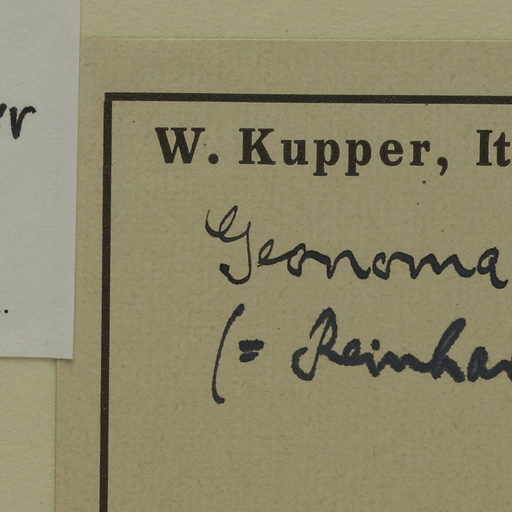 W. Kupper, It
Geonoma
(= Reinhar